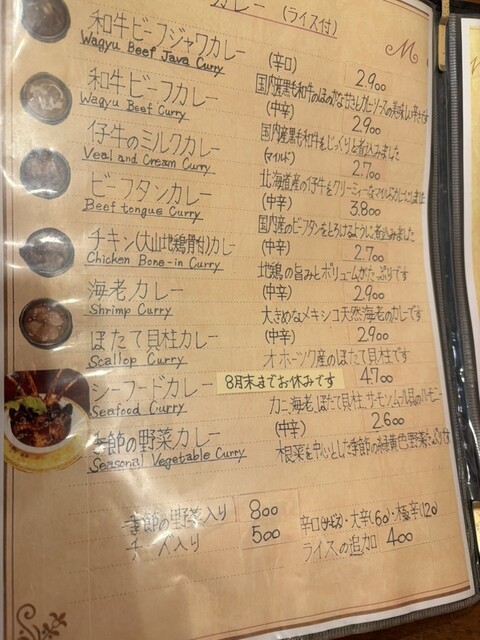 カレー (ライス付)
和牛ビーフジャワカレー (辛口) 2.900
Wagyu Beef Java Curry
国内産黒毛和牛のほのかな甘さとカレーソースの美味しい辛さです
和牛ビーフカレー (中辛) 2.900
Wagyu Beef Curry
国内産黒毛和牛をじっくりと煮込みました
仔牛のミルクカレー (マイルド) 2.700
Veal and Cream Curry
北海道産の仔牛をクリーミーなマイルドカレーにしました
ビーフタンカレー (中辛) 3.800
Beef tongue Curry
国内産のビーフタンをとろけるように煮込みました
チキン(大山地鶏骨付)カレー (中辛) 2.700
Chicken Bone-in Curry
地鶏の旨みとボリュームがたっぷりです
海老カレー (中辛) 2.900
Shrimp Curry
大きめなメキシコ天然海老のカレーです
ほたて貝柱カレー (中辛) 2.900
Scallop Curry
オホーツク産のほたて貝柱です
シーフードカレー 8月末までお休みです 4.700
Seafood Curry
カニ、海老、ほたて貝柱、サーモン、ムール貝のハーモニー
季節の野菜カレー (中辛) 2.600
Seasonal Vegetable Curry
根菜を中心とした季節の緑黄色野菜たっぷりです
季節の野菜入り 800
チーズ入り 500
辛口(サービス)・大辛(60)・極辛(120)
ライスの追加 400